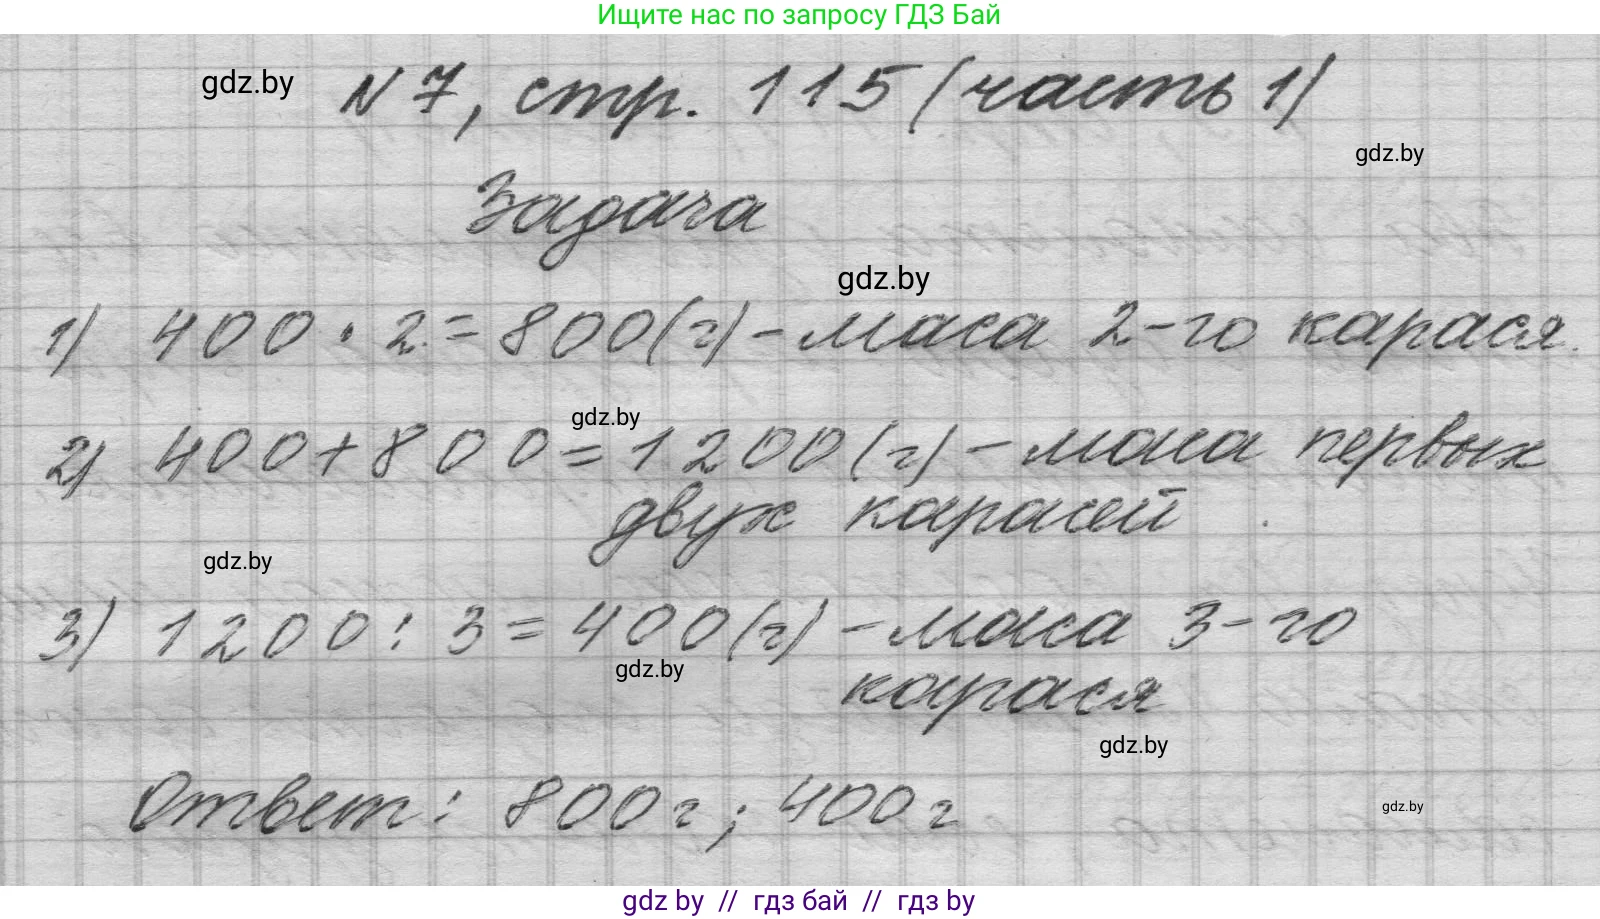 Ищите нас по запросу ГДЗ Бай
gdz.by
N 7, стр. 115 (часть 1)
gdz.by
Задача
gdz.by
1) 400 · 2 = 800 (г) - маса 2-го карася.
gdz.by
2) 400 + 800 = 1200 (г) - маса первых
двух карасей.
gdz.by
3) 1200 : 3 = 400 (г) - маса 3-го
gdz.by
карася
gdz.by
Ответ: 800 г; 400 г
gdz.by
gdz by // гдз бай // гдз by